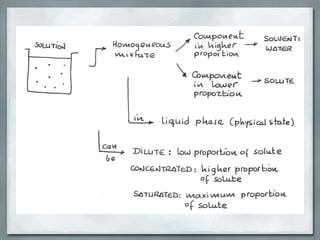 SOLUTION
Homogeneous
mixture
Component
in higher
proportion
SOLVENT:
WATER
Component
in lower
proportion
SOLUTE
in
liquid phase (physical state)
can
be
DILUTE: low proportion of solute
CONCENTRATED: higher proportion
of solute
SATURATED: maximum proportion
of solute